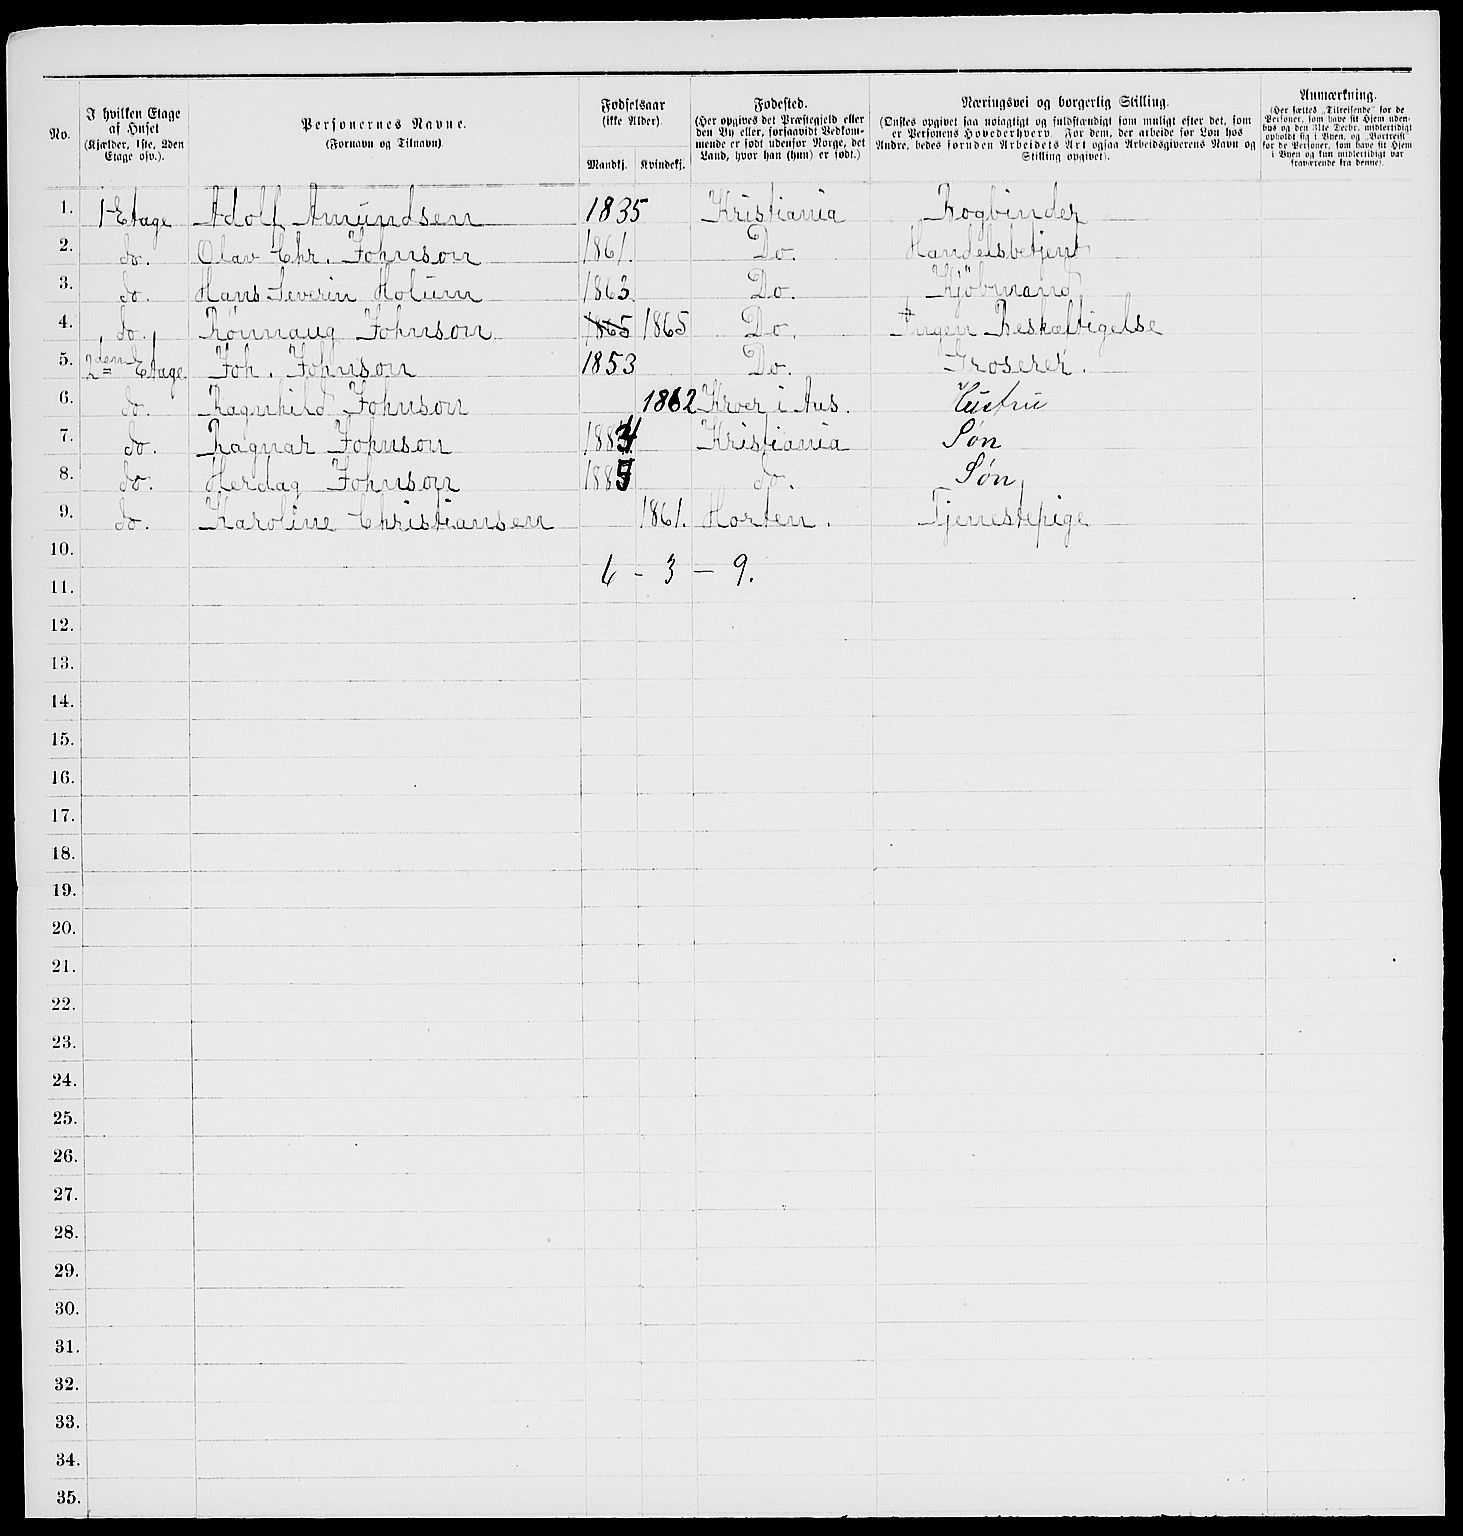 No.
I hvilken Etage af Huset (Kjælder, 1ste, 2den Etage osv.).
Personernes Navne. (Fornavn og Tilnavn)
Fødselsaar (ikke Alder). Mandkj. Kvindekj.
Fødested. (Her opgives det Præstegjeld eller den By eller, forsaavidt Vedkommende er født udenfor Norge, det Land, hvor han (hun) er født.)
Næringsvei og borgerlig Stilling. (Ønskes opgivet saa nøiagtigt og fuldstændigt som muligt efter det, som er Personens Hovederhverv. For dem, der arbeide for Løn hos Andre, bedes foruden Arbeidets Art ogsaa Arbeidsgiverens Navn og Stilling opgivet).
Anmærkning. (Her sættes „Tilreisende" for de Personer, som have sit Hjem udenbys og den 31te Decbr. midlertidigt opholdt sig i Byen, og „Bortreist" for de Personer, som have sit Hjem i Byen og kun midlertidigt var fraværende fra denne).
1. 1 Etage Adolf Amundsen 1835 Kristiania Bogbinder
2. do. Olav Chr. Johnson 1861. Do. Handelsbetjent
3. do. Hans Severin Holum 1863 Do. Kjöbmand
4. do. Rønnaug Johnson 1865 1865 Do. Ingen Beskæftigelse
5. 2den Etage Joh. Johnson 1853 Do. Groserer.
6. do. Ragnhild Johnson 1862 Kroer i Aas. Hustru
7. do. Ragnar Johnson 1884 Kristiania Søn
8. do. Herdag Johnson 1885 do. Søn
9. do. Karoline Christiansen 1861. Horten. Tjenestepige
10.
6 - 3 - 9.
11.
12.
13.
14.
15.
16.
17.
18.
19.
20.
21.
22.
23.
24.
25.
26.
27.
28.
29.
30.
31.
32.
33.
34.
35.